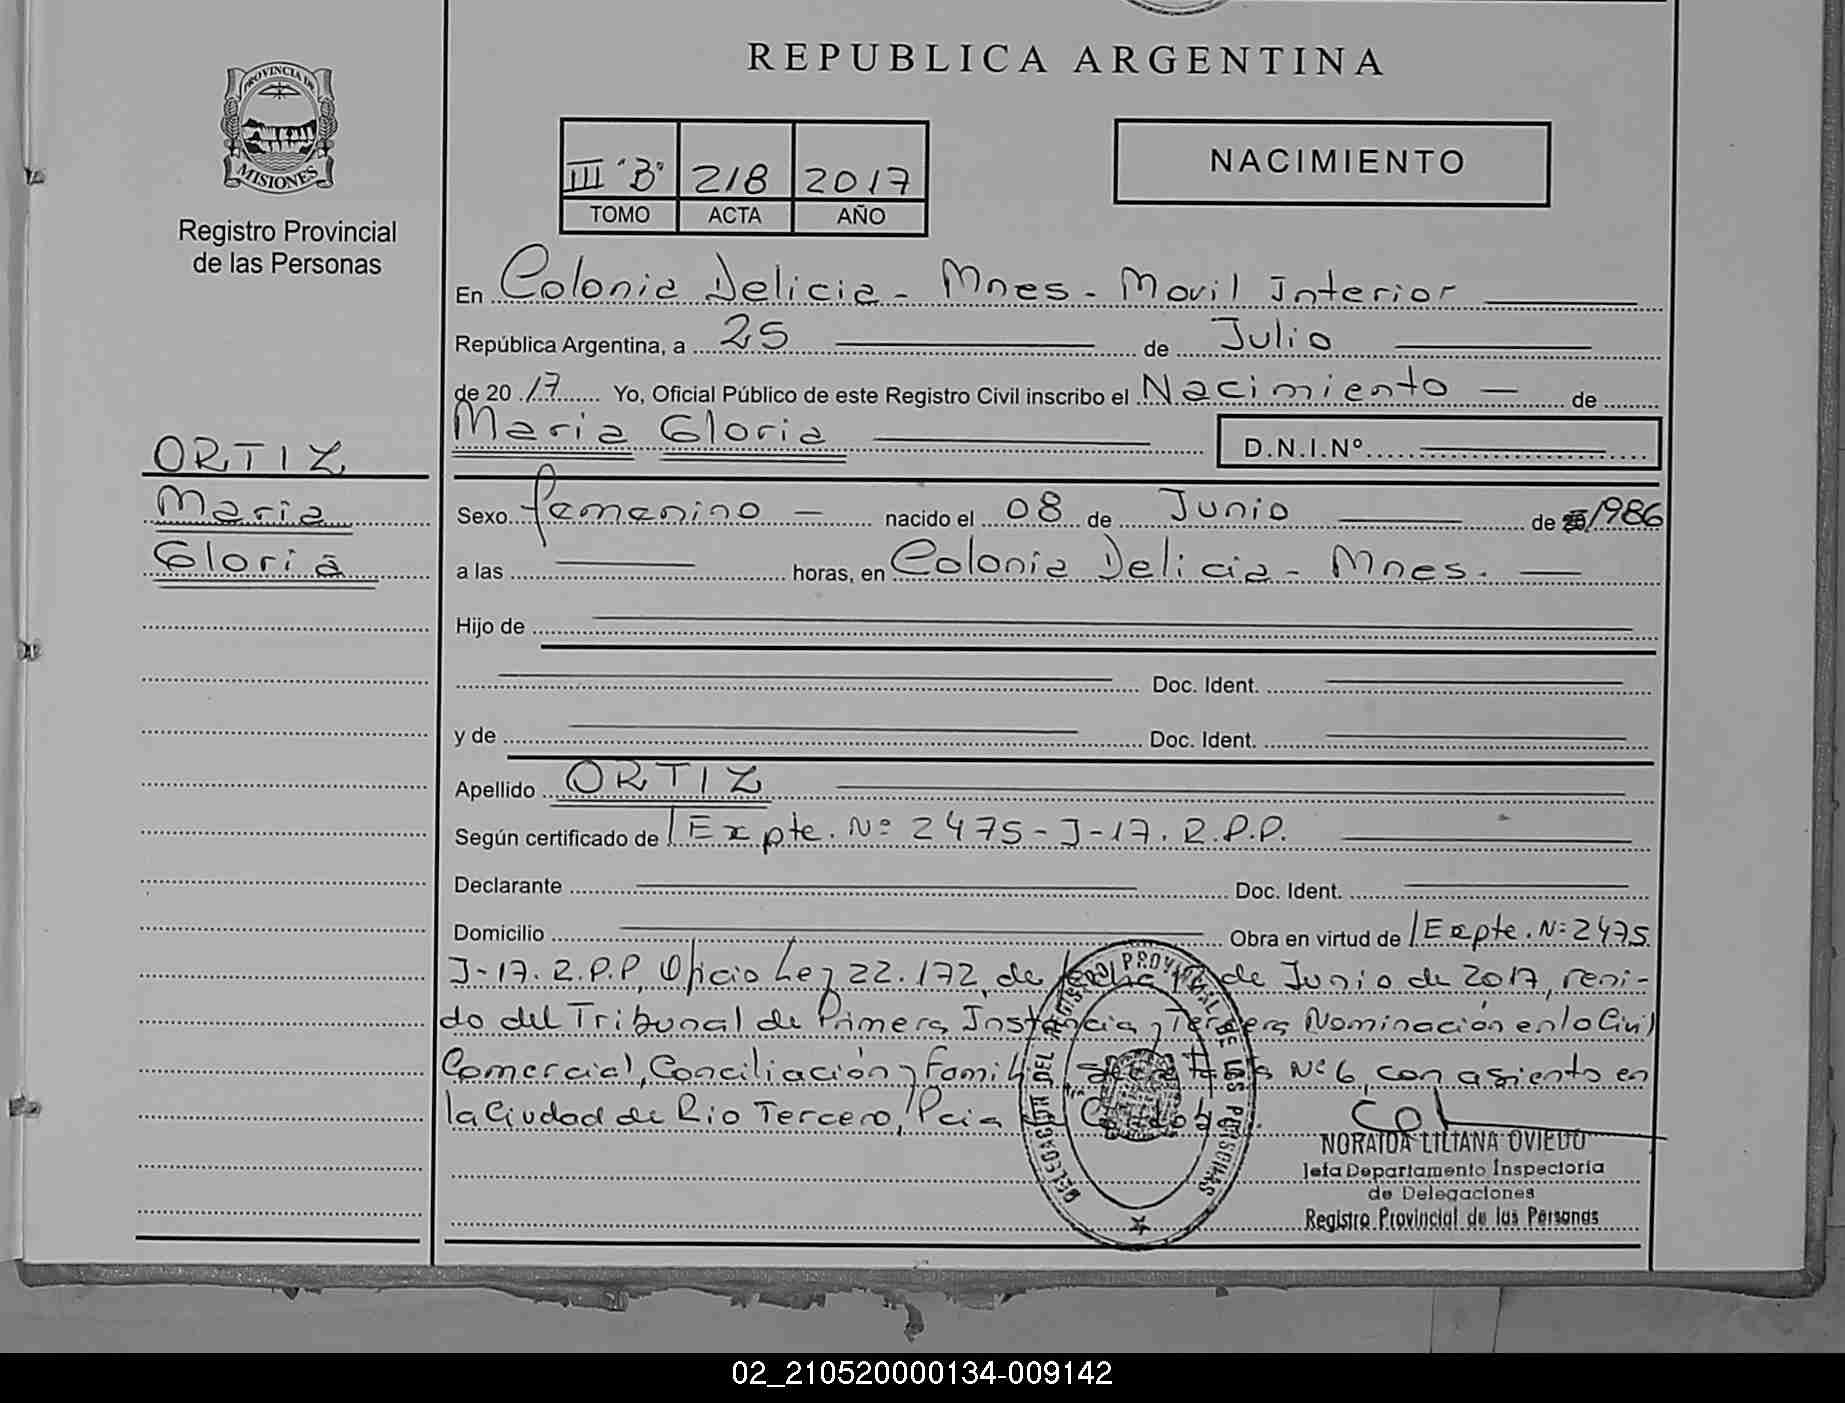 REPUBLICA ARGENTINA
PROVINCIA DE
MISIONES
Registro Provincial
de las Personas
III "B" 218 2017
TOMO ACTA AÑO
NACIMIENTO
En Colonia Delicia - Mnes - Movil Interior
República Argentina, a 25 de Julio
de 20 17 Yo, Oficial Público de este Registro Civil inscribo el Nacimiento — de
Maria Gloria D.N.I.Nº
ORTIZ
Maria
Gloria
Sexo femenino — nacido el 08 de Junio de 1986
a las horas, en Colonia Delicia - Mnes. —
Hijo de
Doc. Ident.
y de Doc. Ident.
Apellido ORTIZ
Según certificado de Expte. Nº 2475-J-17. R.P.P.
Declarante Doc. Ident.
Domicilio Obra en virtud de Expte. Nº 2475
J-17. R.P.P, Oficio Ley 22.172, de fecha de Junio de 2017, reni-
do del Tribunal de Primera Instancia y Tercera Nominación en lo Civil
Comercial, Conciliación y Familia, Nº 6, con asiento en
la Ciudad de Rio Tercero, Pcia de Cordoba.
DELEGACION DEL REGISTRO PROVINCIAL DE LAS PERSONAS
NORAIDA LILIANA OVIEDO
Jefa Departamento Inspectoria
de Delegaciones
Registro Provincial de las Personas
02_210520000134-009142